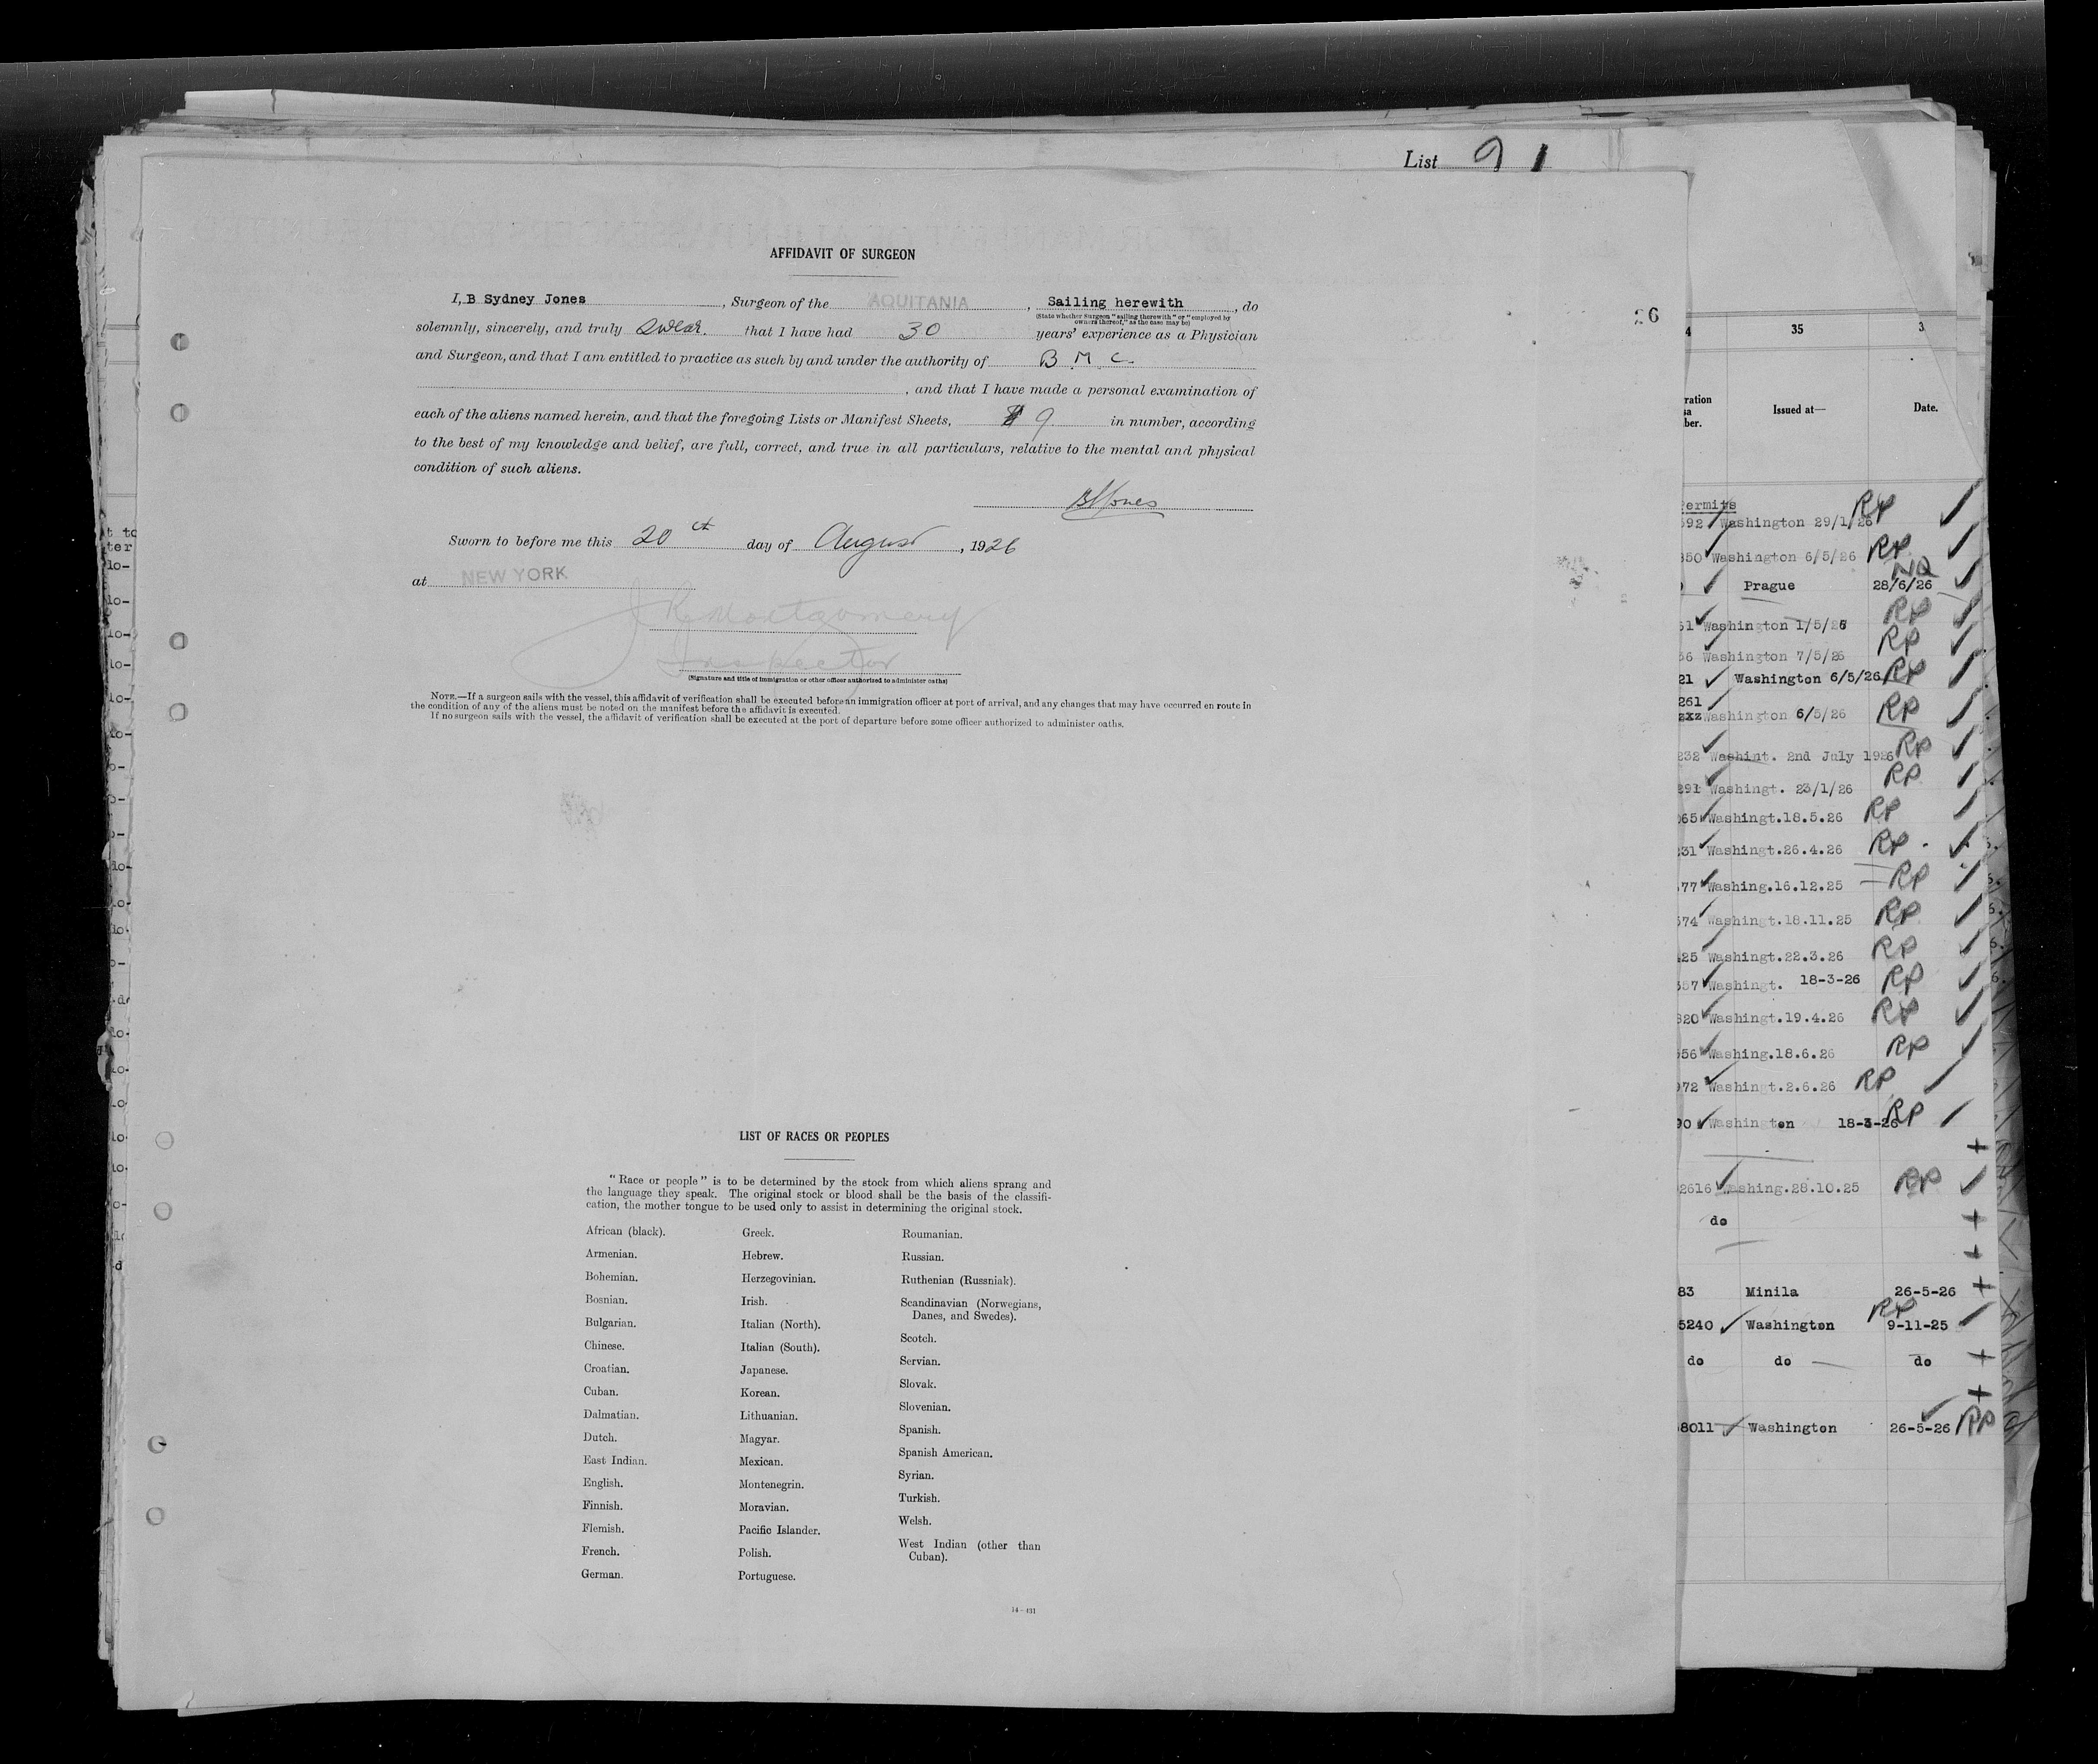 List 9 1
AFFIDAVIT OF SURGEON
I, B Sydney Jones, Surgeon of the AQUITANIA, Sailing herewith, do
(State whether Surgeon "sailing therewith" or "employed by
owners thereof," as the case may be)
solemnly, sincerely, and truly swear. that I have had 30 years' experience as a Physician
and Surgeon, and that I am entitled to practice as such by and under the authority of B M C
, and that I have made a personal examination of
each of the aliens named herein, and that the foregoing Lists or Manifest Sheets, 9 in number, according
to the best of my knowledge and belief, are full, correct, and true in all particulars, relative to the mental and physical
condition of such aliens.
BSJones
Sworn to before me this 20 day of August, 1926
at NEW YORK
Montgomery
Inspector
(Signature and title of immigration or other officer authorized to administer oaths)
NOTE.—If a surgeon sails with the vessel, this affidavit of verification shall be executed before an immigration officer at port of arrival, and any changes that may have occurred en route in
the condition of any of the aliens must be noted on the manifest before the affidavit is executed.
If no surgeon sails with the vessel, the affidavit of verification shall be executed at the port of departure before some officer authorized to administer oaths.
LIST OF RACES OR PEOPLES
"Race or people" is to be determined by the stock from which aliens sprang and
the language they speak. The original stock or blood shall be the basis of the classifi-
cation, the mother tongue to be used only to assist in determining the original stock.
African (black).
Armenian.
Bohemian.
Bosnian.
Bulgarian.
Chinese.
Croatian.
Cuban.
Dalmatian.
Dutch.
East Indian.
English.
Finnish.
Flemish.
French.
German.
Greek.
Hebrew.
Herzegovinian.
Irish.
Italian (North).
Italian (South).
Japanese.
Korean.
Lithuanian.
Magyar.
Mexican.
Montenegrin.
Moravian.
Pacific Islander.
Polish.
Portuguese.
Roumanian.
Russian.
Ruthenian (Russniak).
Scandinavian (Norwegians,
Danes, and Swedes).
Scotch.
Servian.
Slovak.
Slovenian.
Spanish.
Spanish American.
Syrian.
Turkish.
Welsh.
West Indian (other than
Cuban).
14—431
26
4 35 3
ration
ber.
Issued at— Date.
ermits
592 Washington 29/1/26 RP
350 Washington 6/5/26 RP
Prague 28/6/26 NQ
61 Washington 1/5/26 RP
56 Washington 7/5/26 RP
21 Washington 6/5/26 RP
261
zxz Washington 6/5/26 RP
232 Washint. 2nd July 1926 RP
291 Washingt. 23/1/26 RP
065 Washingt.18.5.26 RP
231 Washingt.26.4.26 RP
77 Washing.16.12.25 RP
574 Washingt.18.11.25 RP
425 Washingt.22.3.26 RP
557 Washingt. 18-3-26 RP
820 Washingt.19.4.26 RP
556 Washing.18.6.26 RP
972 Washingt.2.6.26 RP
90 Washington 18-3-26 RP
2616 Washing.28.10.25 RP
do
83 Minila 26-5-26
5240 Washington 9-11-25 RP
do do do
8011 Washington 26-5-26 RP